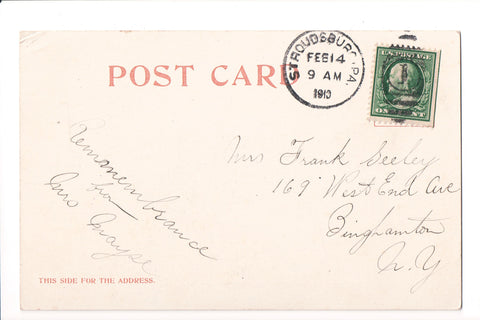 POST CARD
STROUDSBURG, PA.
FEB 14
9 AM
1910
U.S. POSTAGE
ONE CENT
Mrs Frank Seeley
169 West End Ave
Binghamton
N.Y
Rememembrance
from
Mrs
THIS SIDE FOR THE ADDRESS.